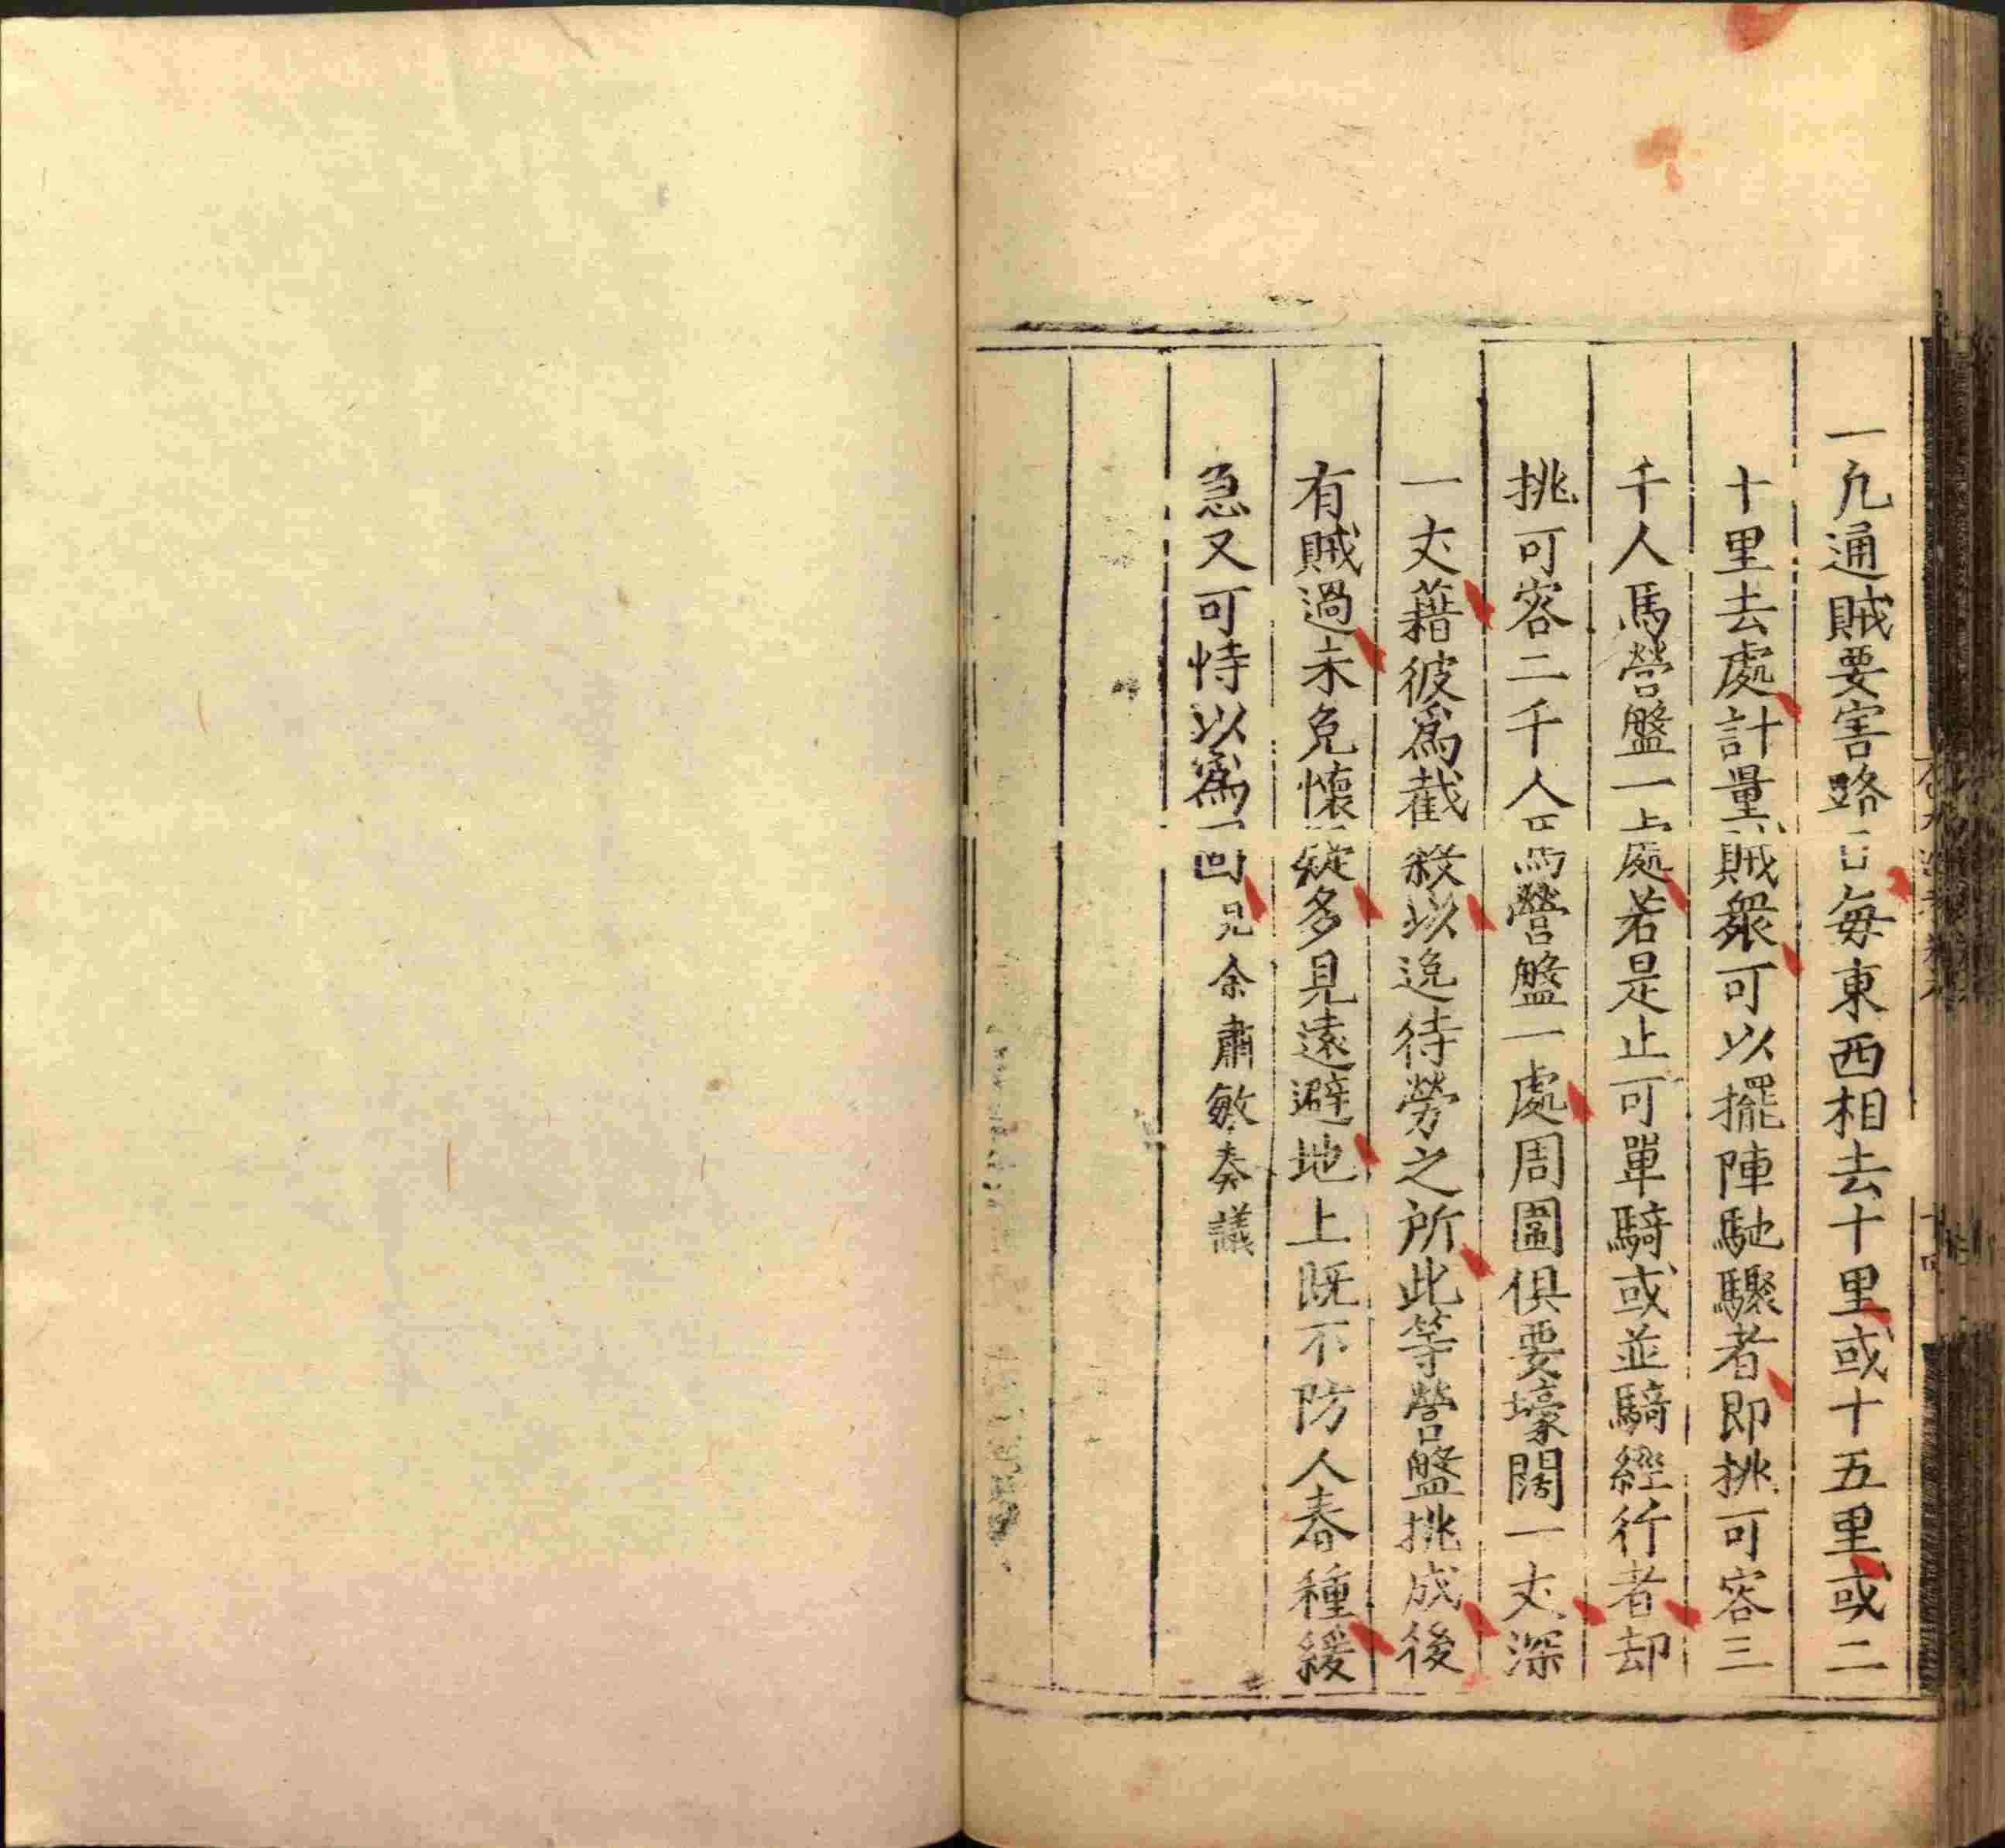 一凢通賊要害路口每東西相去十里或十五里或二
十里去處計量賊衆可以擺陣馳驟者即挑可容三
千人馬營盤一處若是止可單騎或並騎經行者却
挑可容二千人馬營盤一處周圍俱要壕闊一丈深
一丈藉彼爲截殺以逸待勞之所此等營盤挑成後
有賊過未免懷疑多見遠避地上既不防人春種緩
急又可恃以爲固見余肅敏奏議